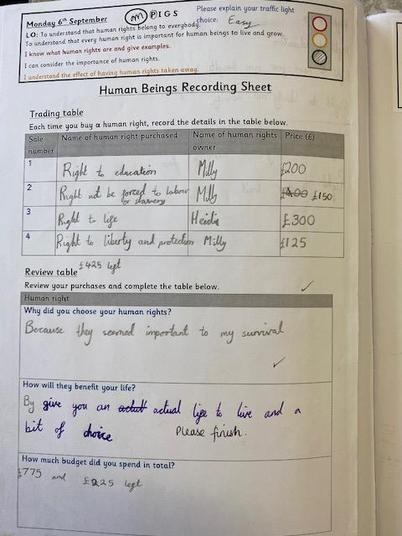 Monday 6th September
M PIGS
Please explain your traffic light
choice: Easy
LO: To understand that human rights belong to everybody.
To understand that every human right is important for human beings to live and grow.
I know what human rights are and give examples.
I can consider the importance of human rights.
I understand the effect of having human rights taken away.
Human Beings Recording Sheet
Trading table
Each time you buy a human right, record the details in the table below.
Sale number Name of human right purchased Name of human rights owner Price (£)
1 Right to education Milly £200
2 Right not be forced to labour or slavery Milly £150
3 Right to life Heidi £300
4 Right to liberty and protection Milly £125
£425 left
Review table
Review your purchases and complete the table below.
Human right
Why did you choose your human rights?
Because they seemed important to my survival
How will they benefit your life?
By give you an actual life to live and a
bit of choice Please finish.
How much budget did you spend in total?
£775 and £225 left